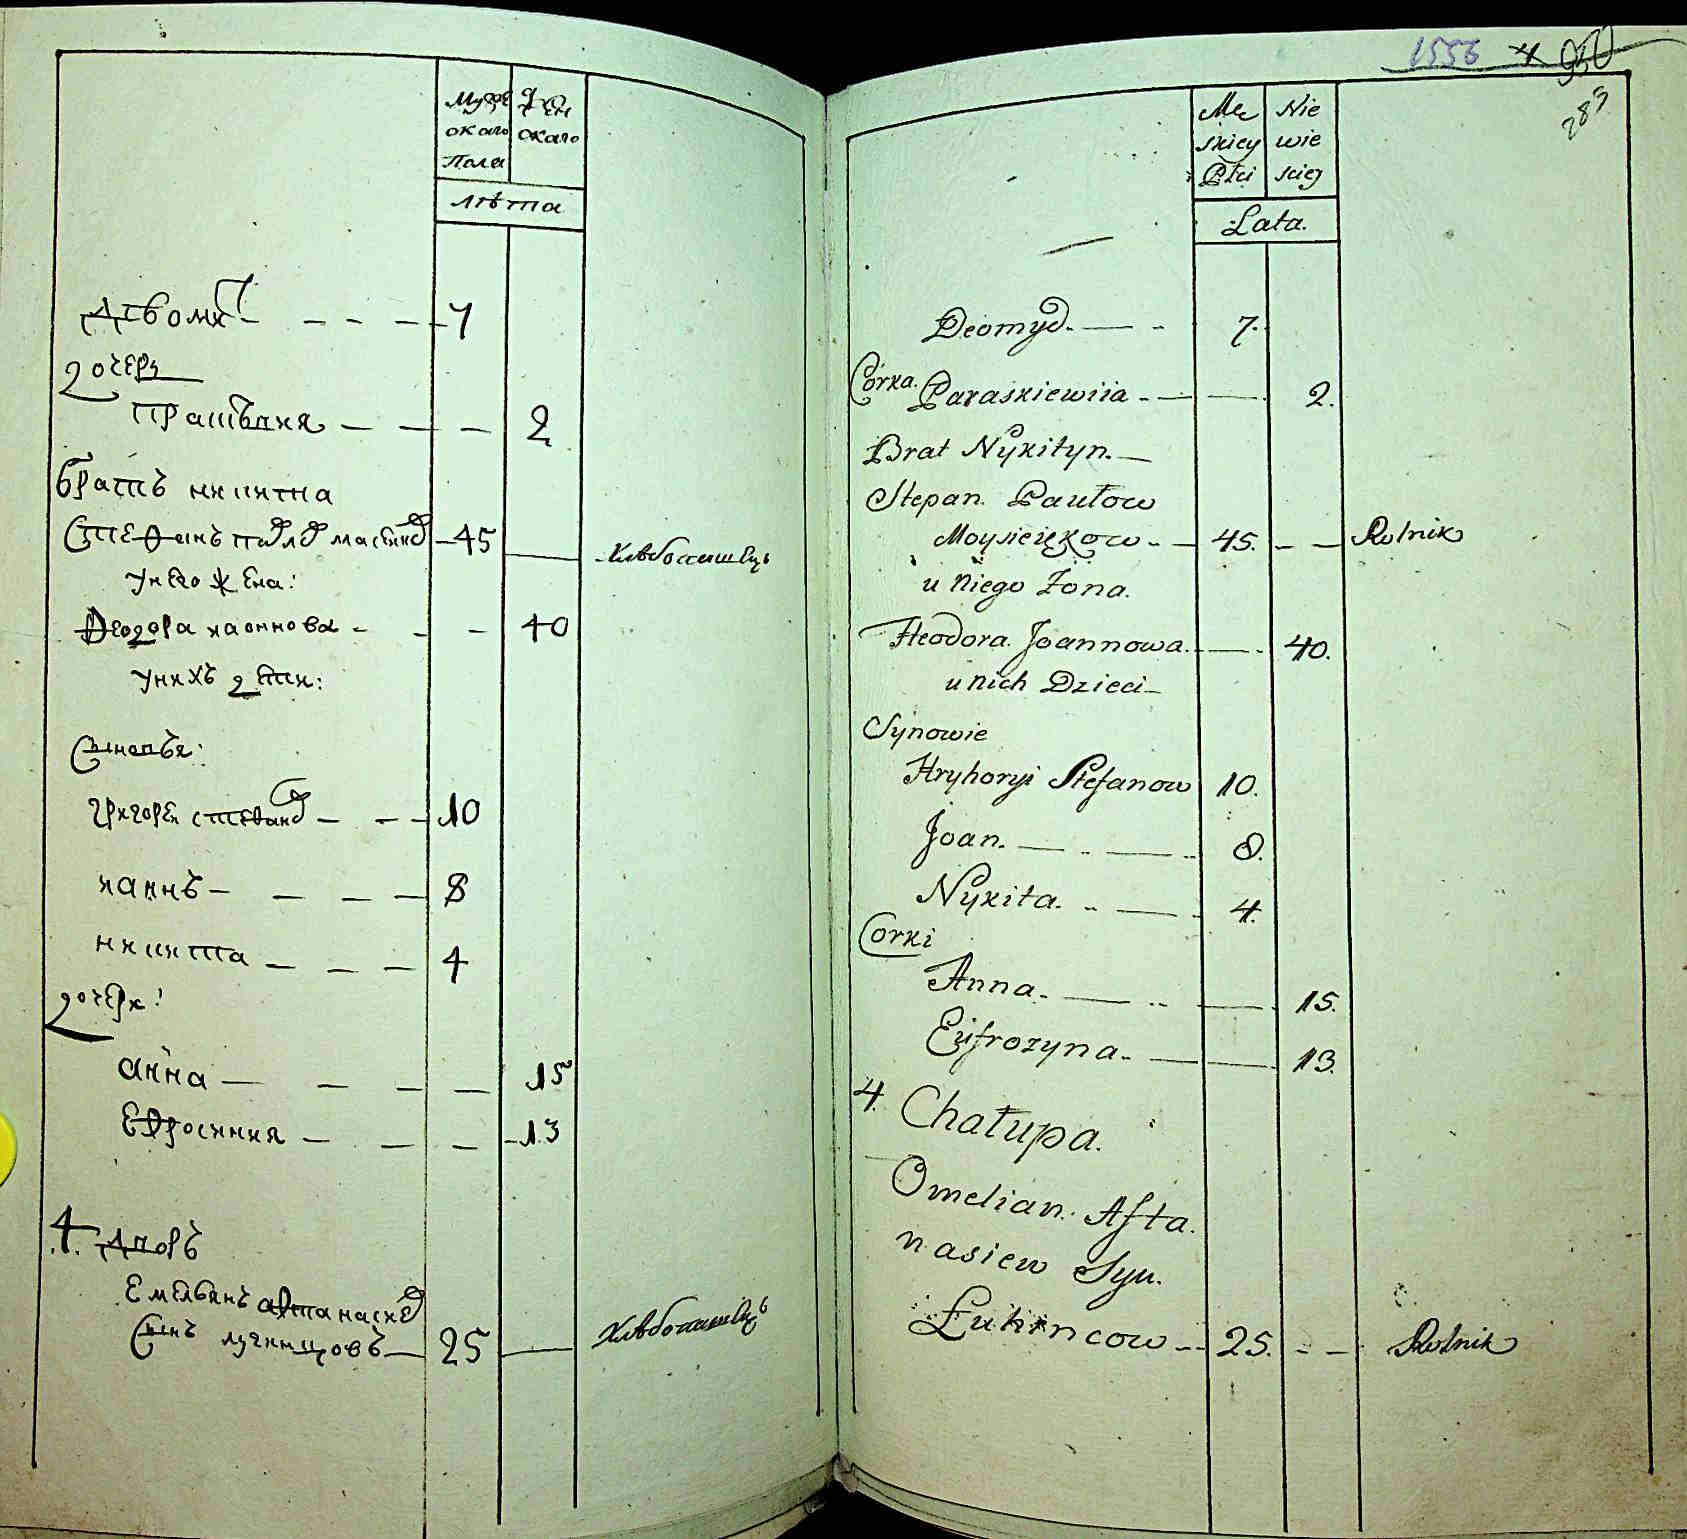 Муже
скаго
Пола
Жен
скаго
лѣта
Дѣомид - - - - 7
дочерь
Прасковия - - - 2
братъ никитна
Стефанъ павлов - 45 - Хлѣбопашецъ
у него жена:
Феодора иоаннова - - - 40
у нихъ дѣти:
Сыновья:
григорей стефанов - - - 10
ианнъ - - - - 8
никита - - - 4
дочери:
анна - - - - 15
Ефросиния - - - - 13
4. Дворъ
Емельянъ афтанасиев
Сынъ лучинцовъ - 25 - Хлѣбопашецъ
1556 950
283
Mę
skiey
Płci
Nie
wie
skiej
Lata.
Deomyd. - - 7.
Córka. Paraskiewiia - - - 2.
Brat Nykityn. -
Stepan Pawłow
Moysieiękow - - 45. - - Rolnik
u Niego Żona.
Fteodora Joannowa. - - 40.
u Nich Dzieci -
Synowie
Hryhoryi Stefanow 10.
Joan. - - - 8.
Nykita. - - 4.
Corki
Anna. - - - 15.
Eufrozyna. - - 13.
4. Chałupa.
Omelian Afta.
nasiew Syn.
Łukincow - - 25. - - Rolnik